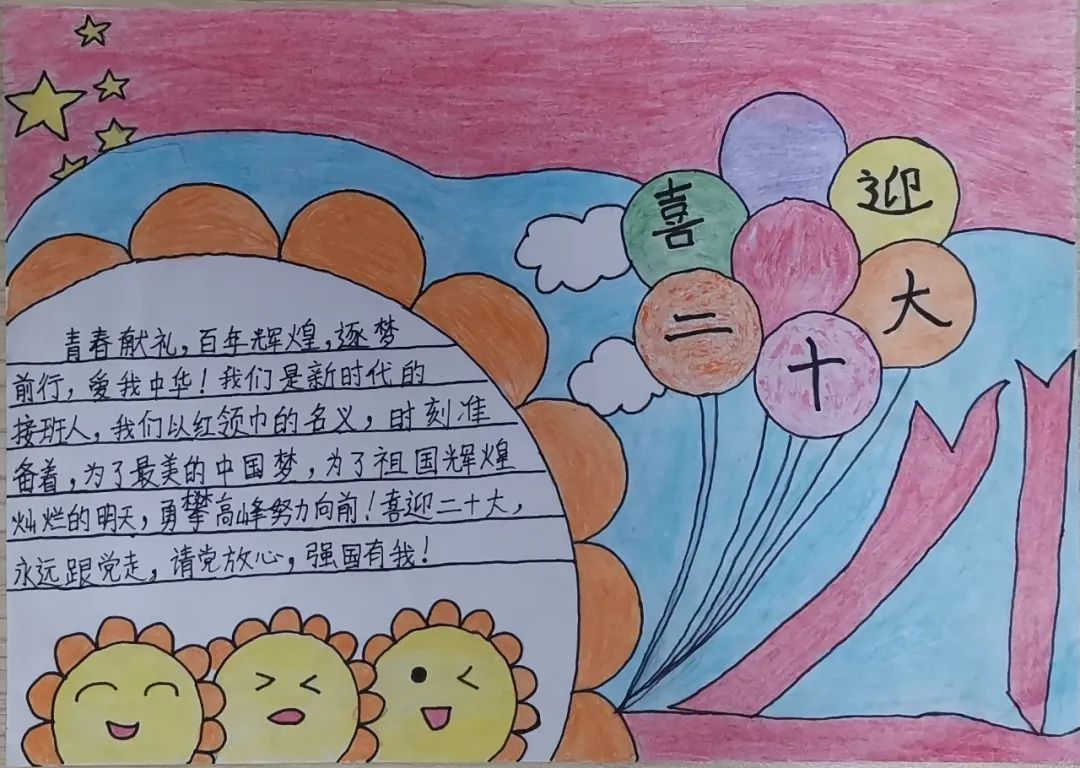 喜迎
二十大
青春献礼，百年辉煌，逐梦
前行，爱我中华！我们是新时代的
接班人，我们以红领巾的名义，时刻准
备着，为了最美的中国梦，为了祖国辉煌
灿烂的明天，勇攀高峰努力向前！喜迎二十大，
永远跟党走，请党放心，强国有我！